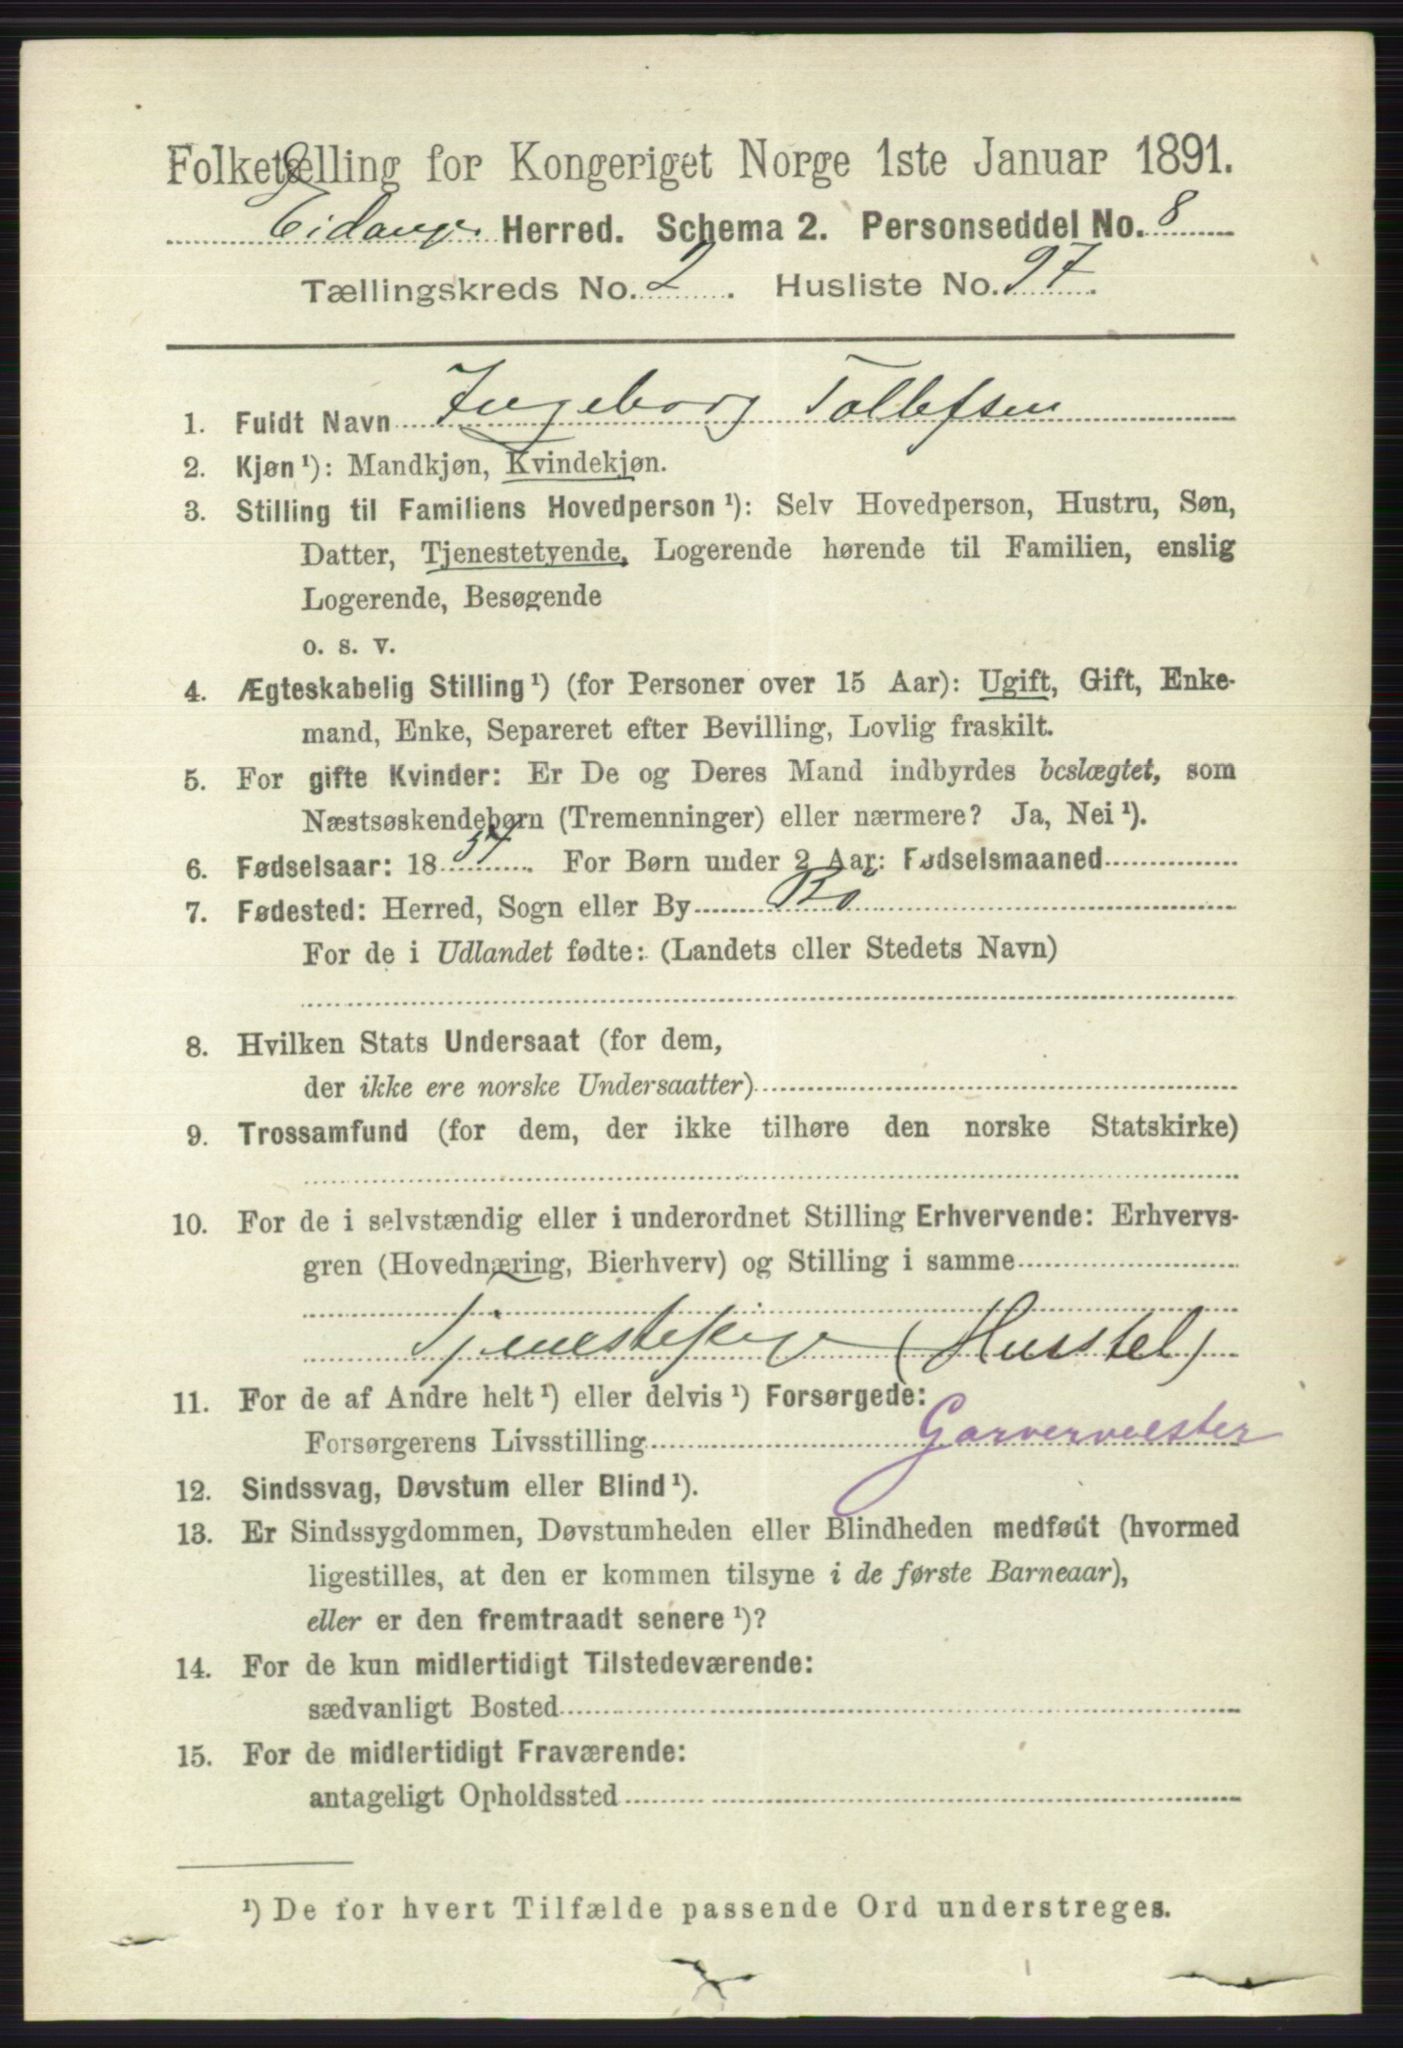 Folketælling for Kongeriget Norge 1ste Januar 1891.
Eidanger Herred. Schema 2. Personseddel No. 8
Tællingskreds No. 2. Husliste No. 97.
1. Fuldt Navn Ingeborg Tollefsen
2. Kjøn¹): Mandkjøn, Kvindekjøn.
3. Stilling til Familiens Hovedperson¹): Selv Hovedperson, Hustru, Søn,
Datter, Tjenestetyende, Logerende hørende til Familien, enslig
Logerende, Besøgende
o. s. v.
4. Ægteskabelig Stilling¹) (for Personer over 15 Aar): Ugift, Gift, Enke-
mand, Enke, Separeret efter Bevilling, Lovlig fraskilt.
5. For gifte Kvinder: Er De og Deres Mand indbyrdes beslægtet, som
Næstsøskendebørn (Tremenninger) eller nærmere? Ja, Nei¹).
6. Fødselsaar: 1857. For Børn under 2 Aar: Fødselsmaaned
7. Fødested: Herred, Sogn eller By Bö
For de i Udlandet fødte: (Landets eller Stedets Navn)
8. Hvilken Stats Undersaat (for dem,
der ikke ere norske Undersaatter)
9. Trossamfund (for dem, der ikke tilhøre den norske Statskirke)
10. For de i selvstændig eller i underordnet Stilling Erhvervende: Erhvervs-
gren (Hovednæring, Bierhverv) og Stilling i samme
Tjenestepige (Husstel)
11. For de af Andre helt¹) eller delvis¹) Forsørgede:
Forsørgerens Livsstilling Garvermester
12. Sindssvag, Døvstum eller Blind¹).
13. Er Sindssygdommen, Døvstumheden eller Blindheden medfødt (hvormed
ligestilles, at den er kommen tilsyne i de første Barneaar),
eller er den fremtraadt senere¹)?
14. For de kun midlertidigt Tilstedeværende:
sædvanligt Bosted
15. For de midlertidigt Fraværende:
antageligt Opholdssted
¹) De for hvert Tilfælde passende Ord understreges.